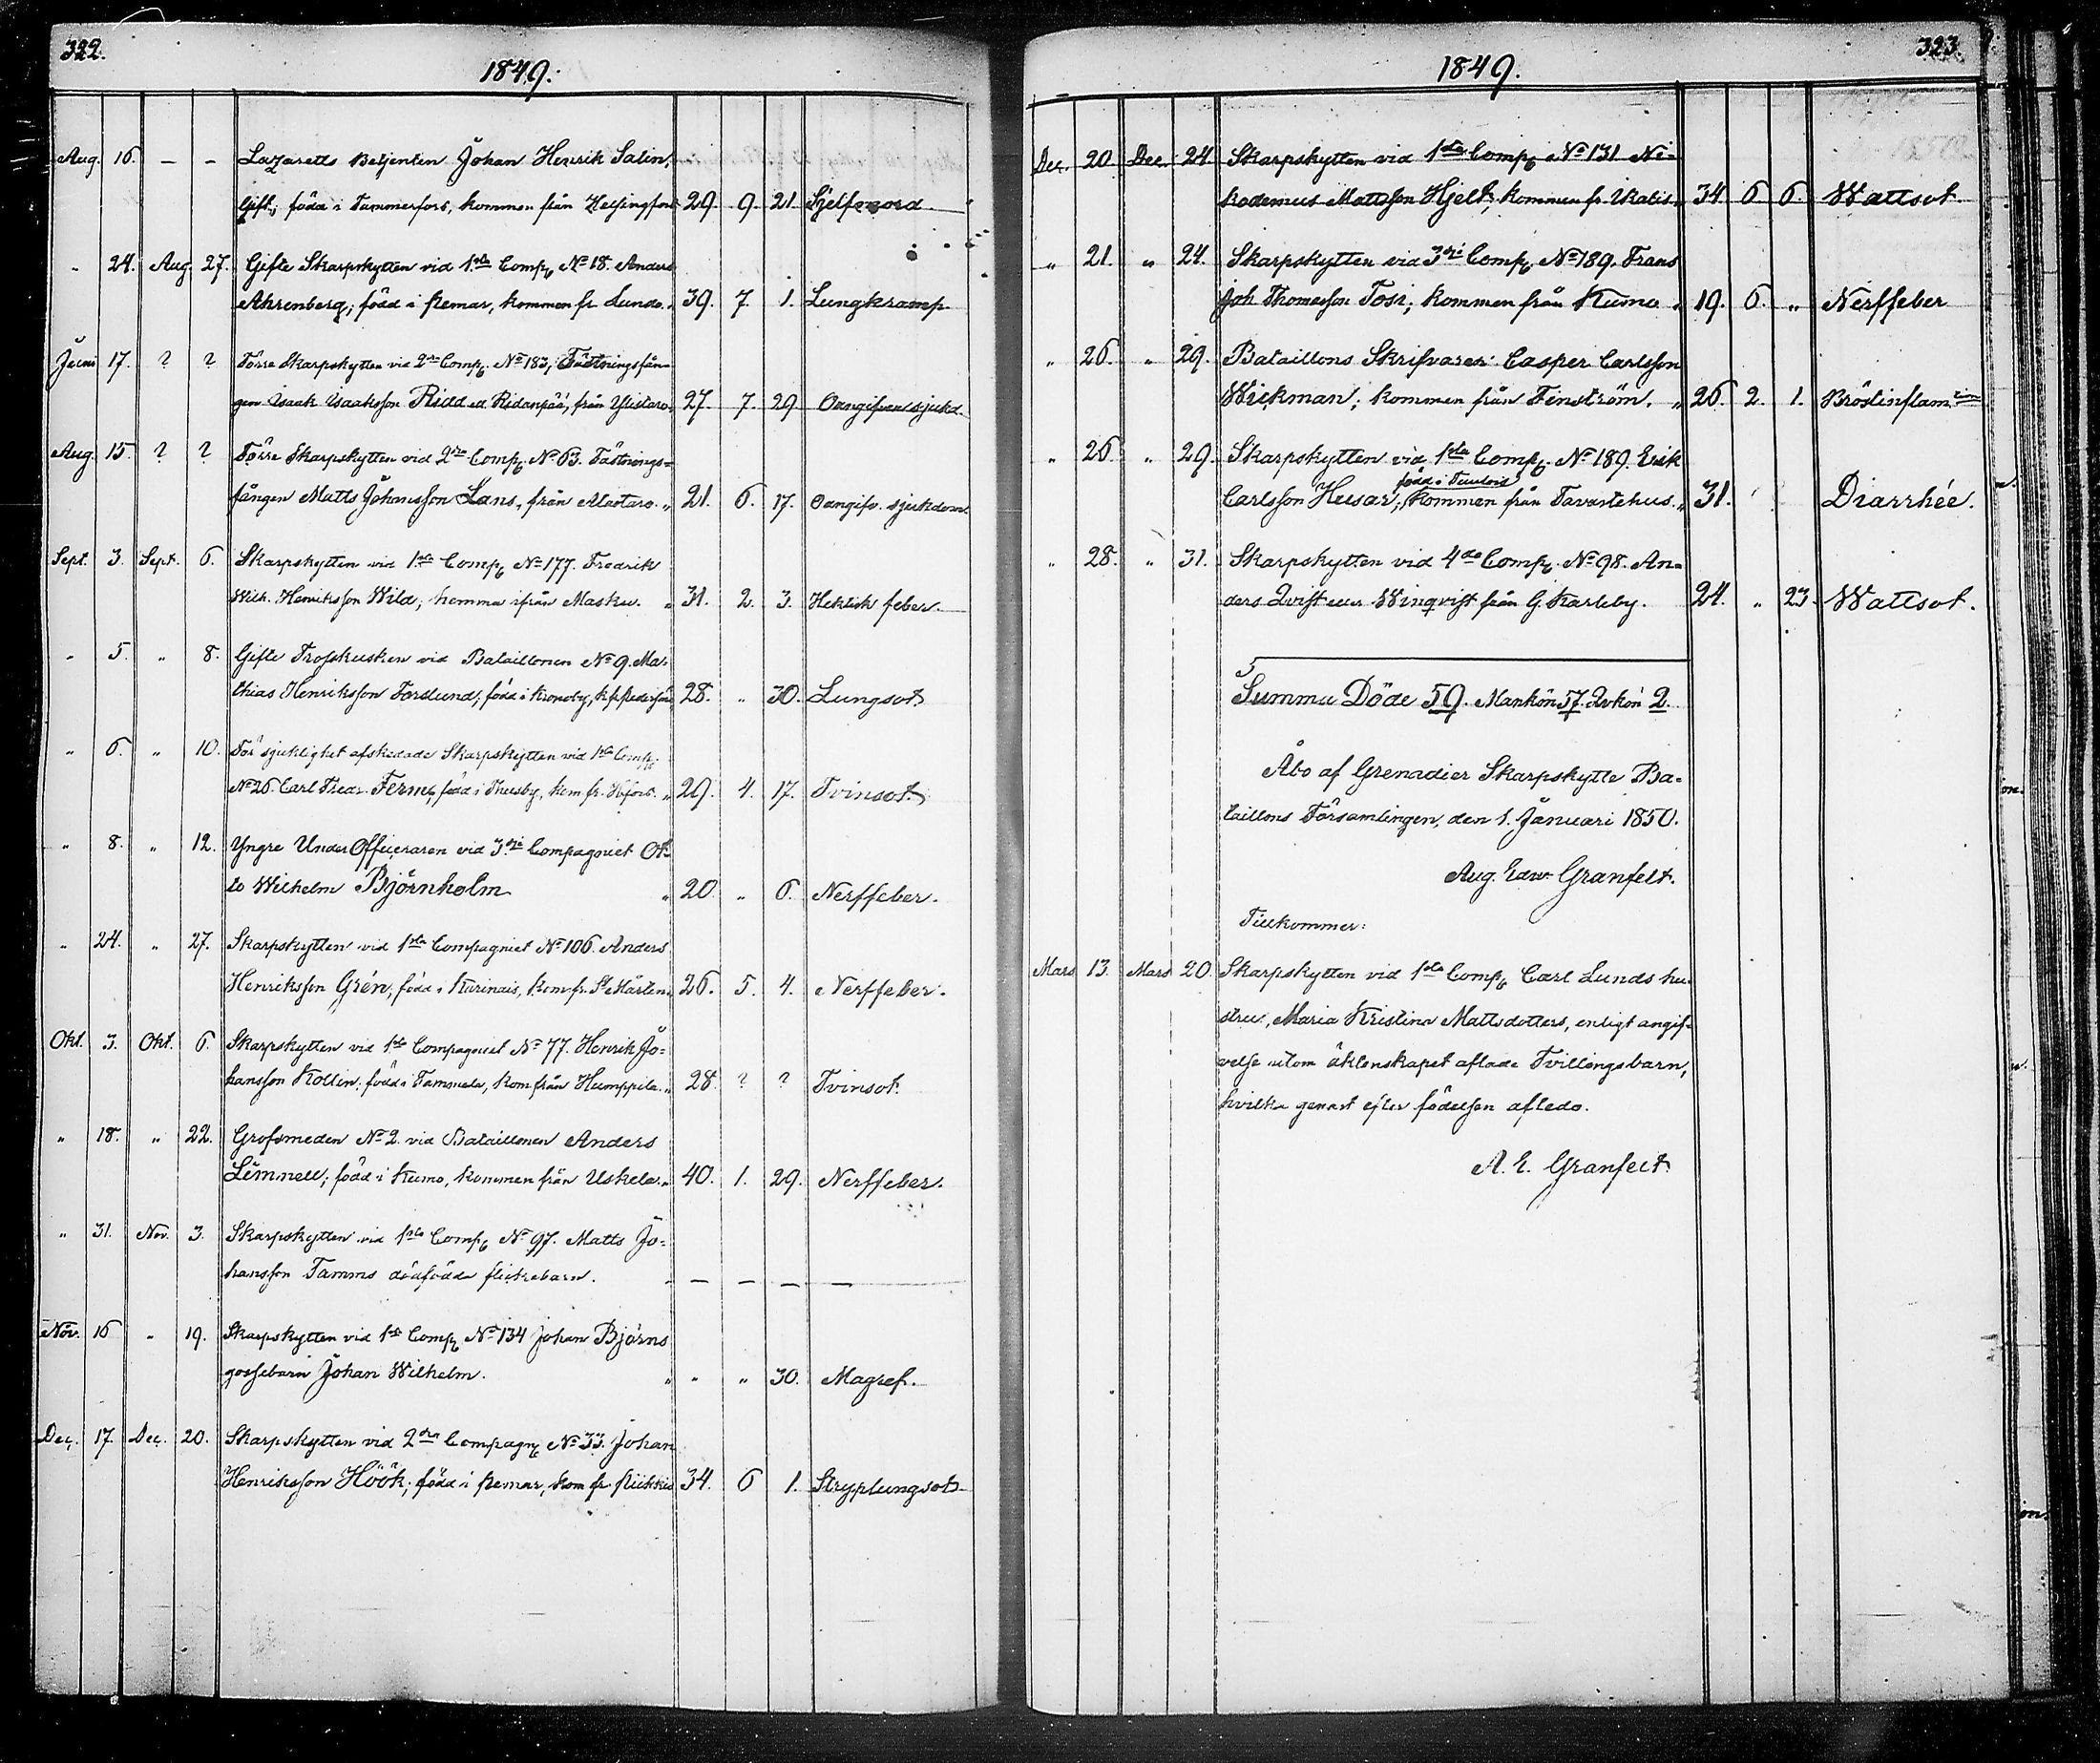 322.
1849.
Aug. 16. — — Lazaretts Betjenten Johan Henrik Salin,
Gift; född i Tammerfors, kommen från Helsingfors 29. 9. 21. Sjelfmord
" 24. Aug. 27. Gifte Skarpskytten vid 1sta Comp. No 18. Anders
Ahrenberg; född i Kemar, kommen fr. Lundo. " 39. 7. 1. Lungkramp
Juni 17. ? ? Förra Skarpskytten vid 2dra Comp. No 183, Fästningsfån-
gen Isaak Isaaksson Ridd ell. Ridanpää, från Ylistaro. 27. 7. 29 Oangifven sjukd.
Aug. 15. ? ? Förre Skarpskytten vid 2dra Comp. No 63. Fästnings=
fången Matts Johansson Lans, från Alastaro. " 21. 6. 17. Oangifv. sjukdom
Sept. 3. Sept. 6. Skarpskytten vid 1sta Comp. No 177. Fredrik
Wilh. Henriksson Wild; hemma ifrån Masku. " 31. 2. 3. Hektisk feber.
" 5. " 8. Gifte Trosskusken vid Bataillonen No 9. Ma-
thias Henriksson Forslund; född i Kronoby, 28. " 30. Lungsot
" 6. " 10. För sjuklighet afskedade Skarpskytten vid 1sta Comp.
No 26. Carl Fredr. Ferm; född i Thusby, kom fr. Hfors. " 29. 4. 17. Tvinsot.
" 8. " 12. Yngre UnderOfficeraren vid 3dje Compagniet Ot-
to Wilhelm Björnholm " 20. " 6. Nerffeber.
" 24. " 27. Skarpskytten vid 1sta Compagniet No 106. Anders
Henriksson Grén; född i Karinais, kom fr. St Mårtens 26. 5. 4. Nerffeber.
Okt. 3. Okt. 6. Skarpskytten vid 1sta Compagniet No 77. Henrik Jo=
hansson Kollin; född i Tammela, kom från Humppila. " 28. ? ? Tvinsot.
" 18. " 22. Grofsmeden No 2. vid Bataillonen Anders
Lemnell; född i Kumo, kommen från Uskela. " 40. 1. 29. Nerffeber.
" 31. Nov. 3. Skarpskytten vid 1sta Comp. No 97. Matts Jo=
hansson Tamms dödfödda flickebarn. — — — —
Nov. 16 " 19. Skarpskytten vid 1sta Comp. No 134 Johan Björns
gossebarn Johan Wilhelm. " " " 30. Magref.
Dec. 17. Dec. 20. Skarpskytten vid 2dra Compagn. No 33. Johan
Henriksson Höök; född i Kemar, kom fr. Piikkis 34. 6 1. Stryplungsot
323.
1849.
Dec. 20. Dec. 24. Skarpskytten vid 1sta Comp. No 131 Ni-
kodemus Mattsson Hjelt; kommen fr. Ikalis. 34. 6 6. Wattsot
" 21. " 24. Skarpskytten vid 3dje Comp. No 189. Frans
Joh. Thomasson Tosi; kommen från Kumo " 19. 6. " Nerffeber
" 26. " 29. Bataillons Skrifvaren Casper Carlsson
Wickman; kommen från Finström. " 26. 2. 1. Bröstinflam:
" 26. " 29. Skarpskytten vid 1sta Comp. No 189 Erik
född i Tenlois
Carlsson Husar; kommen från Tavastehus. " 31. Diarrhée.
" 28. " 31. Skarpskytten vid 4de Comp. No 98. An=
ders Qvist eller Winqvist från G. Karleby. 24. " 23. Wattsot.
Summa Döde 59. Mankön 57. Qvkön 2.
Åbo af Grenadier Skarpskytte Ba-
taillons Församlingen, den 1. Januari 1850.
Aug. Edw. Granfelt.
Tillkommer:
Mars 13. Mars 20. Skarpskytten vid 1sta Comp. Carl Lunds hu-
stru, Maria Kristina Mattsdotters, enligt angif-
velse utom äktenskapet aflade Tvillingsbarn,
hvilka genast efter födelsen afledo.
A. E. Granfelt.